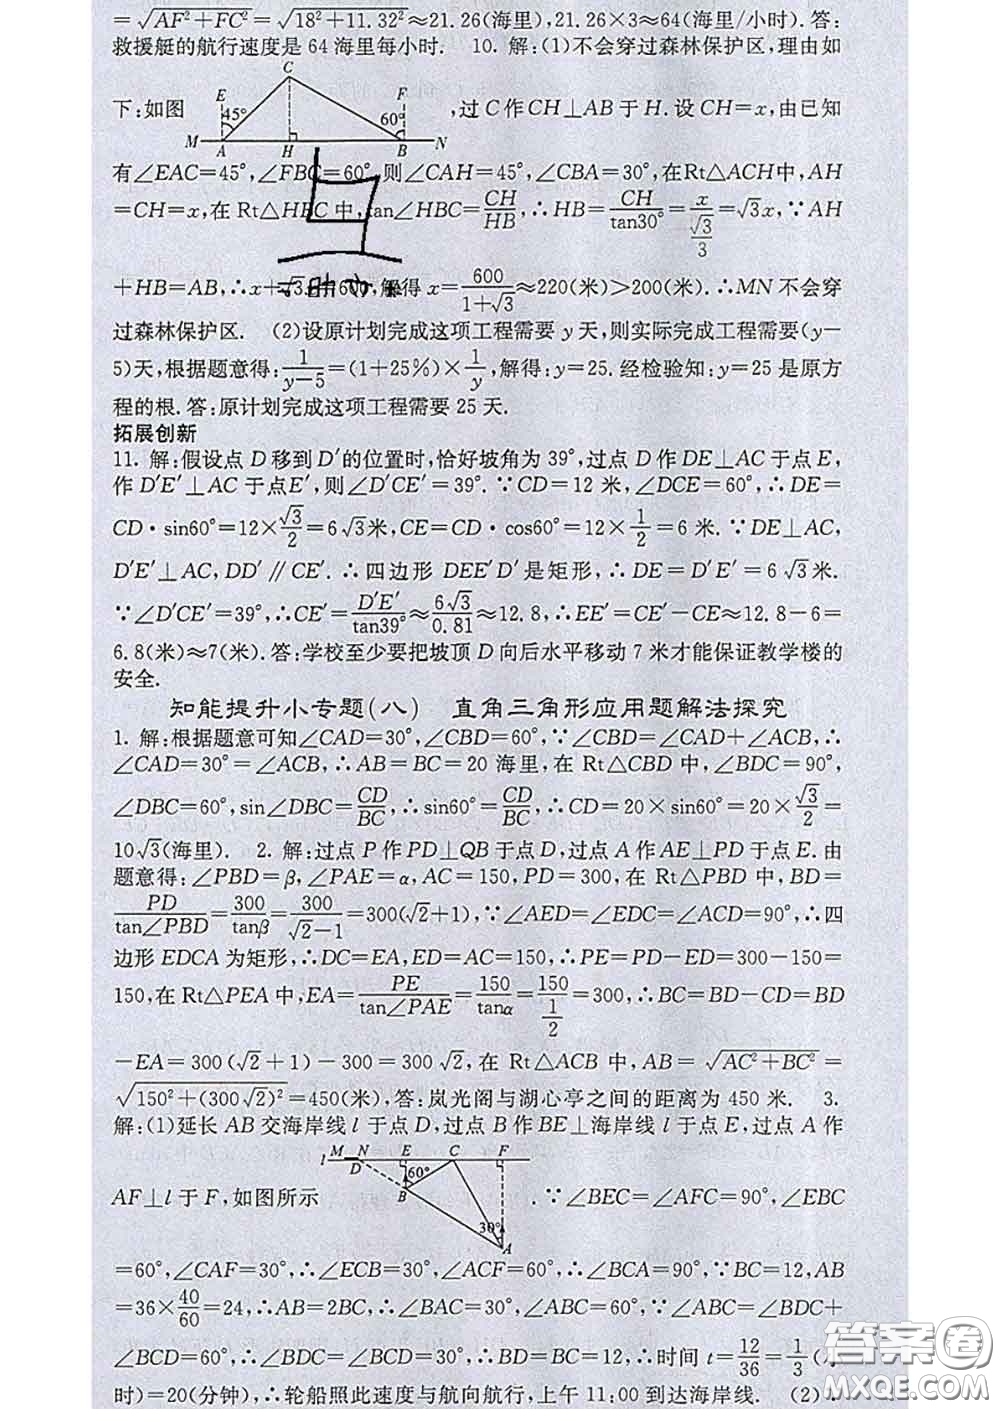 =√(AF²+FC²)=√(18²+11.32²)≈21.26(海里),21.26×3≈64(海里/小时).答:
救援艇的航行速度是 64 海里每小时. 10. 解:(1)不会穿过森林保护区,理由如
下:如图
C
E
F
45°
60°
M
A
H
B
N
,过 C 作 CH⊥AB 于 H. 设 CH=x,由已知
有∠EAC=45°,∠FBC=60°,则∠CAH=45°,∠CBA=30°,在Rt△ACH中,AH
=CH=x,在 Rt△HBC 中,tan∠HBC=CH/HB,∴HB=CH/tan30°=x/(√3/3)=√3x,∵AH
+HB=AB,∴x+√3x=600,解得 x=600/(1+√3)≈220(米)>200(米).∴MN 不会穿
过森林保护区. (2)设原计划完成这项工程需要 y 天,则实际完成工程需要(y-
5)天,根据题意得:1/(y-5)=(1+25%)×1/y,解得:y=25. 经检验知:y=25 是原方
程的根. 答:原计划完成这项工程需要 25 天.
拓展创新
11. 解:假设点 D 移到 D′的位置时,恰好坡角为 39°,过点 D 作 DE⊥AC 于点 E,
作 D′E′⊥AC 于点E′,则∠D′CE′=39°.∵CD=12 米,∠DCE=60°,∴DE=
CD·sin60°=12×√3/2=6√3米,CE=CD·cos60°=12×1/2=6 米.∵DE⊥AC,
D′E′⊥AC,DD′∥CE′.∴四边形 DEE′D′是矩形,∴DE=D′E′=6√3米.
∵∠D′CE′=39°,∴CE′=D′E′/tan39°≈6√3/0.81≈12.8,∴EE′=CE′-CE≈12.8-6=
6.8(米)≈7(米).答:学校至少要把坡顶 D 向后水平移动 7 米才能保证教学楼的
安全.
知能提升小专题(八) 直角三角形应用题解法探究
1. 解:根据题意可知∠CAD=30°,∠CBD=60°,∵∠CBD=∠CAD+∠ACB,∴
∠CAD=30°=∠ACB,∴AB=BC=20 海里,在 Rt△CBD 中,∠BDC=90°,
∠DBC=60°,sin∠DBC=CD/BC,∴sin60°=CD/BC,∴CD=20×sin60°=20×√3/2=
10√3(海里). 2. 解:过点 P 作 PD⊥QB 于点 D,过点 A 作 AE⊥PD 于点 E. 由
题意得:∠PBD=β,∠PAE=α,AC=150,PD=300,在 Rt△PBD 中,BD=
PD/tan∠PBD=300/tanβ=300/(√2-1)=300(√2+1),∵∠AED=∠EDC=∠ACD=90°,∴四
边形 EDCA 为矩形,∴DC=EA,ED=AC=150,∴PE=PD-ED=300-150=
150,在 Rt△PEA 中,EA=PE/tan∠PAE=150/tanα=150/(1/2)=300,∴BC=BD-CD=BD
-EA=300(√2+1)-300=300√2,在 Rt△ACB 中,AB=√(AC²+BC²)=
√(150²+(300√2)²)=450(米),答:岚光阁与湖心亭之间的距离为 450 米. 3.
解:(1)延长 AB 交海岸线 l 于点 D,过点 B 作 BE⊥海岸线 l 于点 E,过点 A 作
AF⊥l 于 F,如图所示
l
M
N
E
C
F
D
60°
B
30°
A
.∵∠BEC=∠AFC=90°,∠EBC
=60°,∠CAF=30°,∴∠ECB=30°,∠ACF=60°,∴∠BCA=90°,∵BC=12,AB
=36×40/60=24,∴AB=2BC,∴∠BAC=30°,∠ABC=60°,∵∠ABC=∠BDC+
∠BCD=60°,∴∠BDC=∠BCD=30°,∴BD=BC=12,∴时间 t=12/36=1/3(小
时)=20(分钟),∴轮船照此速度与航向航行,上午 11:00 到达海岸线. (2)
答案圈
MXQE.COM